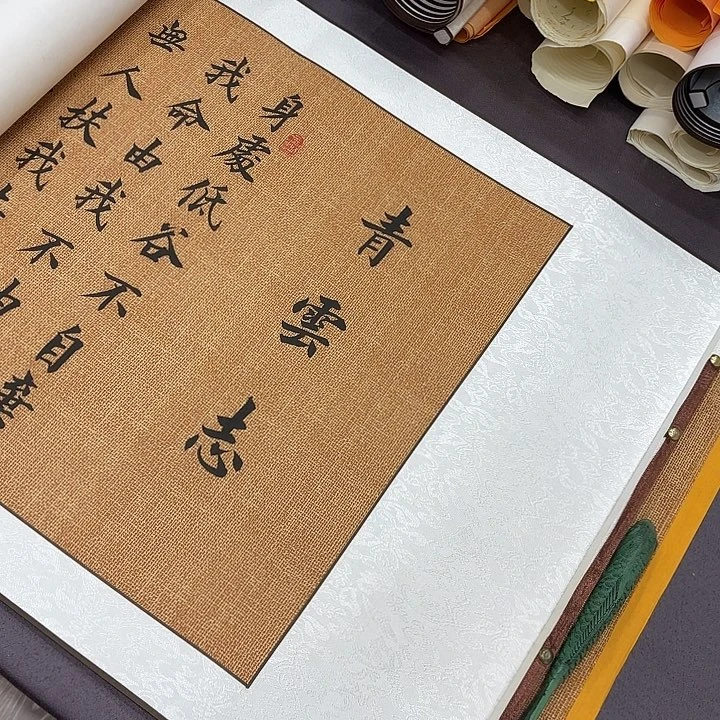 青雲志
身處低谷不自棄
我命由我不由
無人扶我